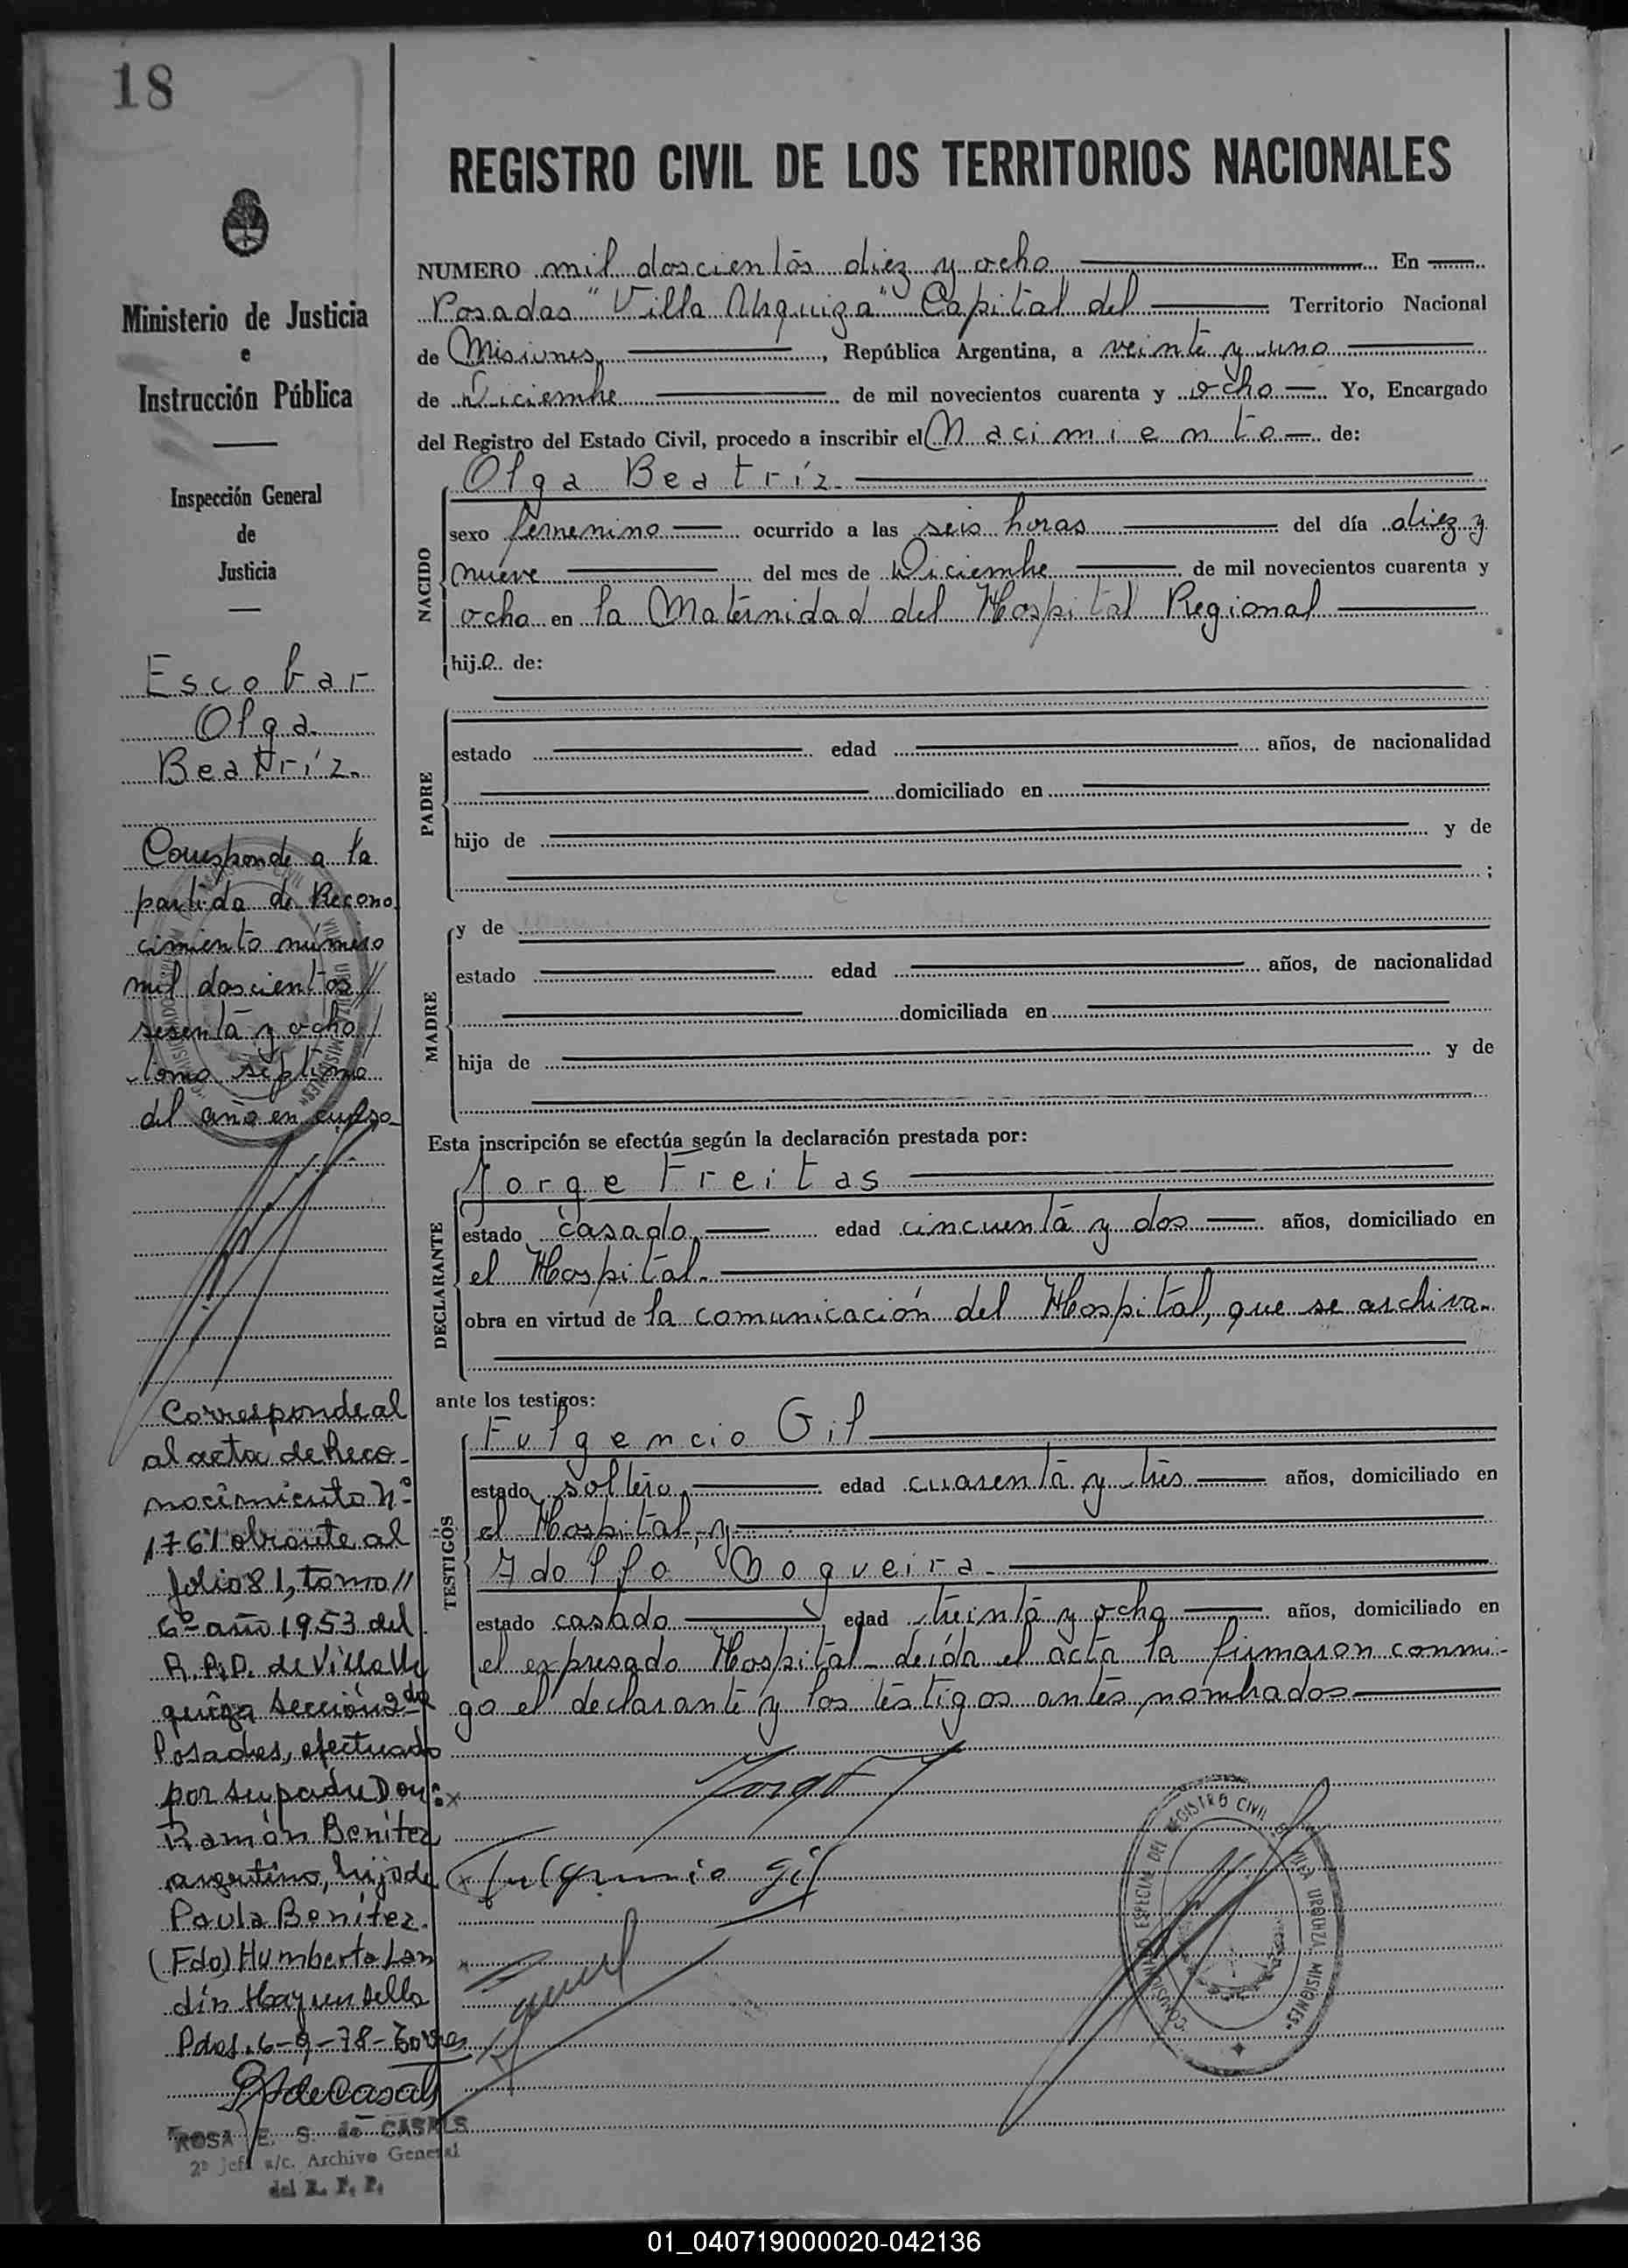 18
REGISTRO CIVIL DE LOS TERRITORIOS NACIONALES
Ministerio de Justicia
e
Instrucción Pública
Inspección General
de
Justicia
Escobar
Olga
Beatríz.
Corresponde a la
partida de Recono
cimiento número
mil doscientos //
sesenta y ocho /
tomo séptimo
del año en curso
Corresponde al
al acta de Reco-
nocimiento Nº
1761 obrante al
folio 81, tomo //
6º año 1953 del
R.P.P. de Villa Ur
quiza Sección 2da
Posadas, efectuado
por su padre Don:
Ramón Benítez
argentino, hijo de
Paula Benítez.
(Fdo) Humberto Lan
din Hay un sello
Pdas. 6-9-78- Torres
ROSA E. S. de CASALS
2º Jefe a/c. Archivo General
del R. P. P.
NUMERO mil doscientos diez y ocho En
Posadas "Villa Urquiza" Capital del Territorio Nacional
de Misiones, República Argentina, a veinte y uno
de Diciembre de mil novecientos cuarenta y ocho Yo, Encargado
del Registro del Estado Civil, procedo a inscribir el Nacimiento de:
NACIDO
Olga Beatríz.
sexo femenino ocurrido a las seis horas del día diez y
nueve del mes de Diciembre de mil novecientos cuarenta y
ocho en la Maternidad del Hospital Regional
hija de:
PADRE
estado edad años, de nacionalidad
domiciliado en
hijo de y de
;
MADRE
y de
estado edad años, de nacionalidad
domiciliada en
hija de y de
Esta inscripción se efectúa según la declaración prestada por:
DECLARANTE
Jorge Freitas
estado casado edad cincuenta y dos años, domiciliado en
el Hospital.
obra en virtud de la comunicación del Hospital, que se archiva.
ante los testigos:
TESTIGOS
Fulgencio Gil
estado soltero, edad cuarenta y tres años, domiciliado en
el Hospital, y
Adolfo Nogueira.
estado casado edad treinta y ocho años, domiciliado en
el expresado Hospital. Leída el acta la firmaron conmi-
go el declarante y los testigos antes nombrados
Fulgencio Gil
COMISIONADO ESPECIAL DEL REGISTRO CIVIL VILLA URQUIZA MISIONES
01_040719000020-042136